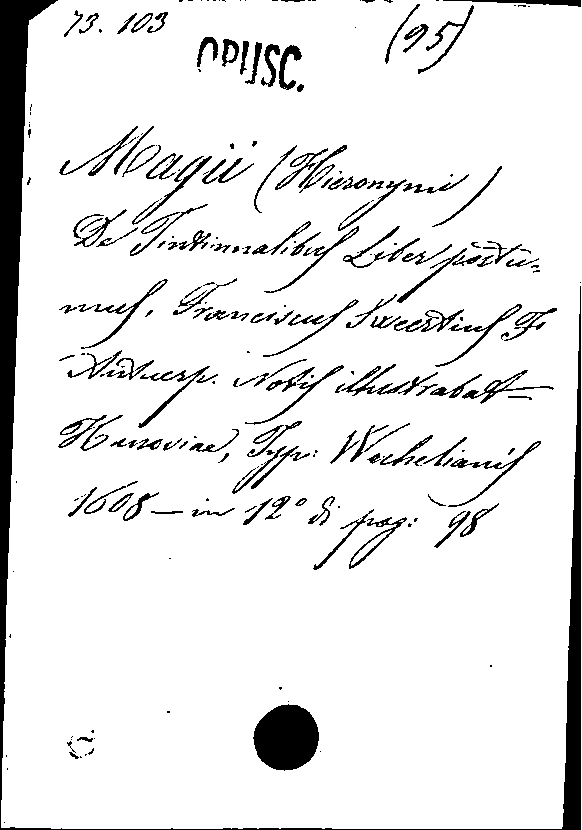 73. 103 (95)
OPUSC.
Magii (Hieronymi)
De Tintinnalibus Liber postu-
mus, Franciscus Sweertius F.
Antuerp. Notis illustrabat —
Hanoviae, Typ: Wechelianis
1608 — in 12° di pag: 98